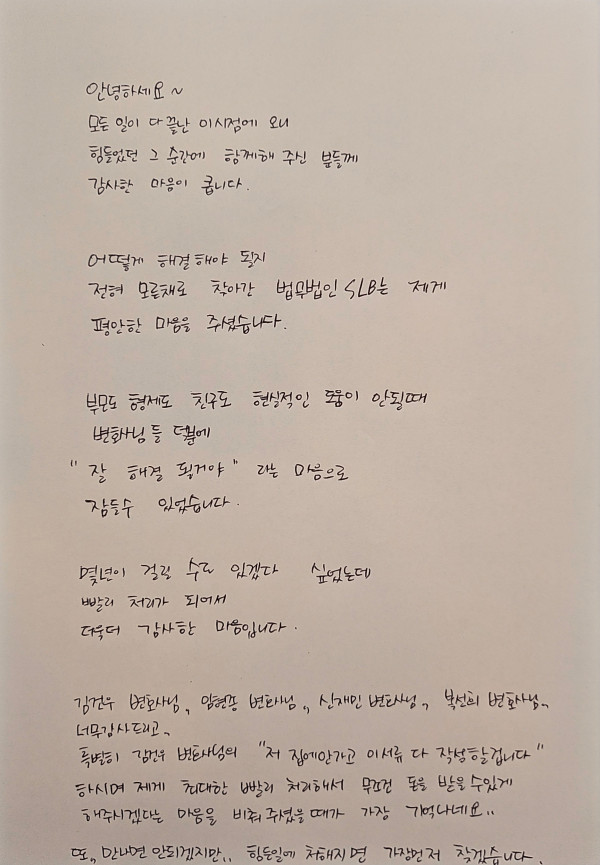 안녕하세요~
모든 일이 다 끝난 이시점에 오니
힘들었던 그 순간에 함께해 주신 분들께
감사한 마음이 큽니다.
어떻게 해결해야 될지
전혀 모른채로 찾아간 법무법인 SLB는 제게
평안한 마음을 주셨습니다.
부모도 형제도 친구도 현실적인 도움이 안될때
변호사님들 덕분에
"잘 해결 될거야" 라는 마음으로
잠들수 있었습니다.
몇년이 걸릴 수도 있겠다 싶었는데
빨리 처리가 되어서
더욱더 감사한 마음입니다.
김건우 변호사님, 임현종 변호사님, 신재민 변호사님, 복선희 변호사님,
너무감사드리고,
특별히 김건우 변호사님의 "저 집에안가고 이서류 다 작성할겁니다"
하시며 제게 최대한 빨리 처리해서 무조건 돈을 받을수있게
해주시겠다는 마음을 비춰 주셨을때가 가장 기억나네요..
또, 만나면 안되겠지만.. 힘든일에 처해지면 가장먼저 찾겠습니다.